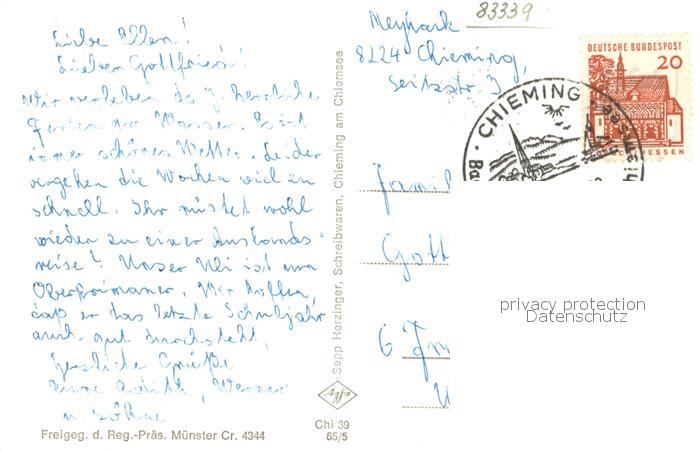 Liebe Ellen!
Lieber Gottfried!
Wir verleben da z. herrliche
Ferien am Wasser. Es ist
immer schönes Wetter. Leider
vergehen die Wochen viel zu
schnell. Ihr rüstet wohl
wieder zu einer Auslands-
reise? Unser Uli ist nun
Oberprimaner. Wir hoffen,
daß er das letzte Schuljahr
auch gut durchsteht.
Herzliche Grüße
Eure Werner
u. Söhne
Freigeg. d. Reg.-Präs. Münster Cr. 4344
Sepp Herzinger, Schreibwaren, Chieming am Chiemsee
Agfa
Chi 39
65/5
83339
8224 Chieming,
Seitzstr. 3
DEUTSCHE BUNDESPOST
20
HESSEN
CHIEMING
Famil
Gott
6
privacy protection
Datenschutz